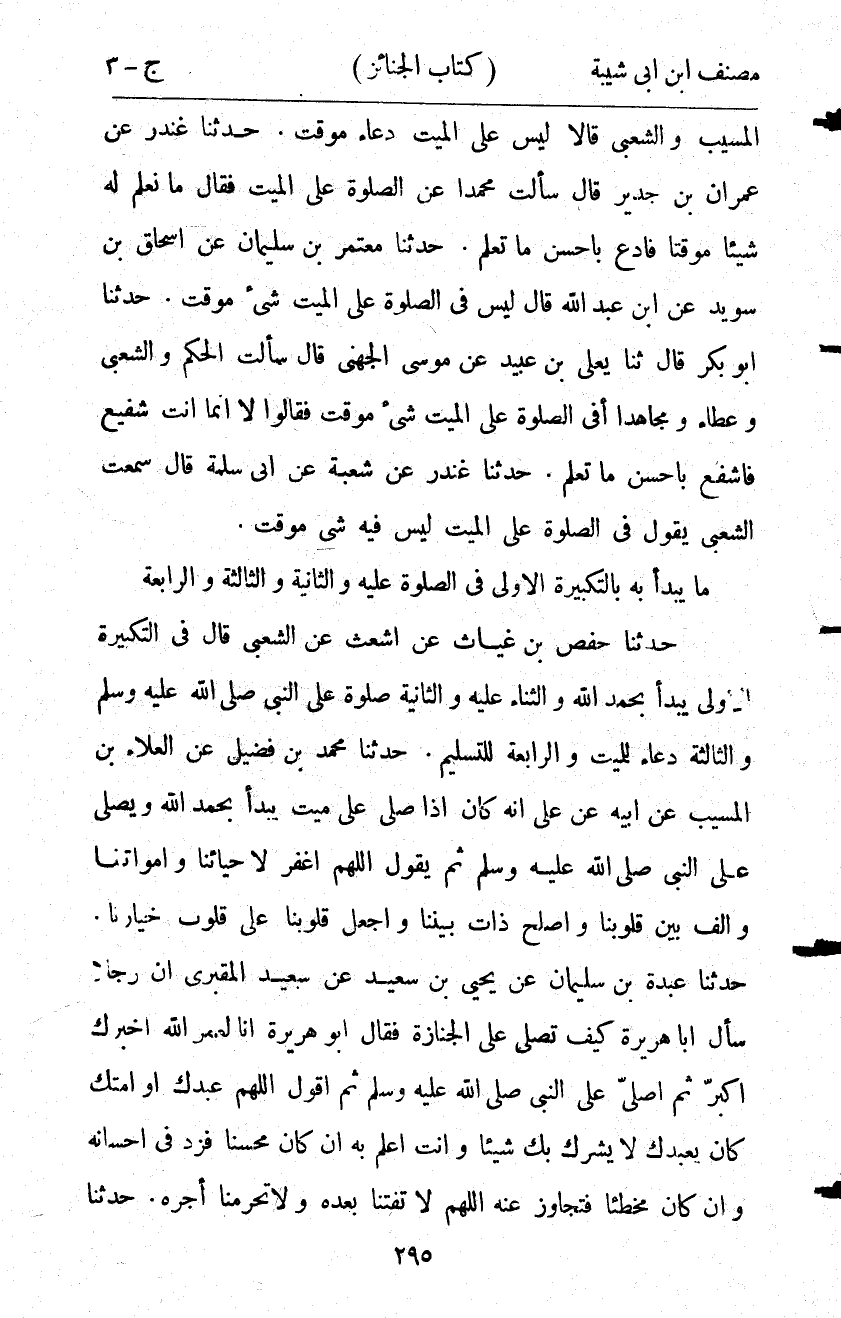 مصنف ابن ابى شيبة (كتاب الجنائز) ج - ٣
المسيب و الشعبى قالا ليس على الميت دعاء موقت . حدثنا غندر عن
عمران بن جدير قال سألت محمدا عن الصلوة على الميت فقال ما نعلم له
شيئا موقتا فادع باحسن ما تعلم . حدثنا معتمر بن سليمان عن اسحاق بن
سويد عن ابن عبد الله قال ليس فى الصلوة على الميت شىء موقت . حدثنا
ابو بكر قال ثنا يعلى بن عبيد عن موسى الجهنى قال سألت الحكم و الشعبى
و عطاء و مجاهدا أفى الصلوة على الميت شىء موقت فقالوا لا انما انت شفيع
فاشفع باحسن ما تعلم . حدثنا غندر عن شعبة عن ابى سلمة قال سمعت
الشعبى يقول فى الصلوة على الميت ليس فيه شى موقت .
ما يبدأ به بالتكبيرة الاولى فى الصلوة عليه و الثانية و الثالثة و الرابعة
حدثنا حفص بن غياث عن اشعث عن الشعبى قال فى التكبيرة
الاولى يبدأ بحمد الله و الثناء عليه و الثانية صلوة على النبى صلى الله عليه وسلم
و الثالثة دعاء للميت و الرابعة للتسليم . حدثنا محمد بن فضيل عن العلاء بن
المسيب عن ابيه عن على انه كان اذا صلى على ميت يبدأ بحمد الله و يصلى
على النبى صلى الله عليه وسلم ثم يقول اللهم اغفر لاحيائنا و امواتنا
و الف بين قلوبنا و اصلح ذات بيننا و اجعل قلوبنا على قلوب خيارنا .
حدثنا عبدة بن سليمان عن يحيى بن سعيد عن سعيد المقبرى ان رجلا
سأل ابا هريرة كيف تصلى على الجنازة فقال ابو هريرة انا لعمر الله اخبرك
اكبرّ ثم اصلىّ على النبى صلى الله عليه وسلم ثم اقول اللهم عبدك او امتك
كان يعبدك لا يشرك بك شيئا و انت اعلم به ان كان محسنا فزد فى احسانه
و ان كان مخطئا فتجاوز عنه اللهم لا تفتنا بعده و لا تحرمنا أجره . حدثنا
٢٩٥